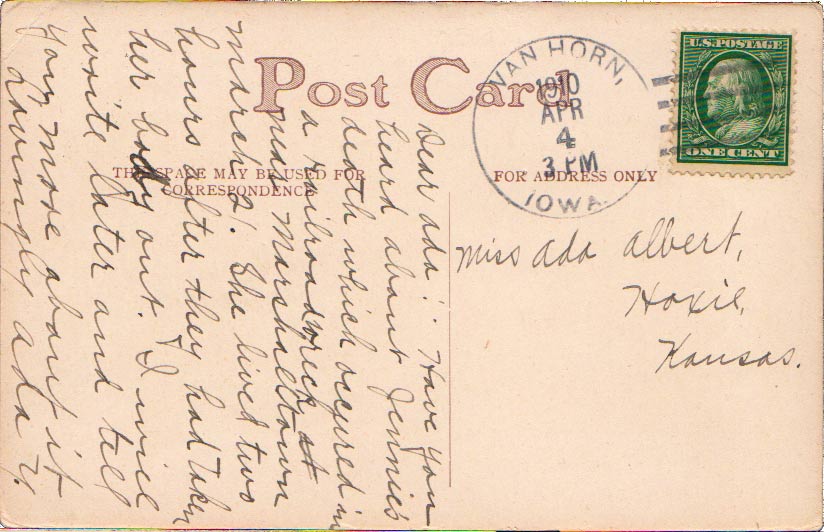 Post Card
THIS SPACE MAY BE USED FOR
CORRESPONDENCE
FOR ADDRESS ONLY
VAN HORN,
1910
APR
4
3 PM
IOWA
U.S. POSTAGE
ONE CENT
Miss Ada Albert,
Hoxie,
Kansas.
Dear Ada! Have you
heard about Jennies
death which occured in
a railroad wreck at
near Marshalltown
March 21. She lived two
hours after they had taken
her body out. I will
write later and tell
you more about it
Lovingly Ada Y.